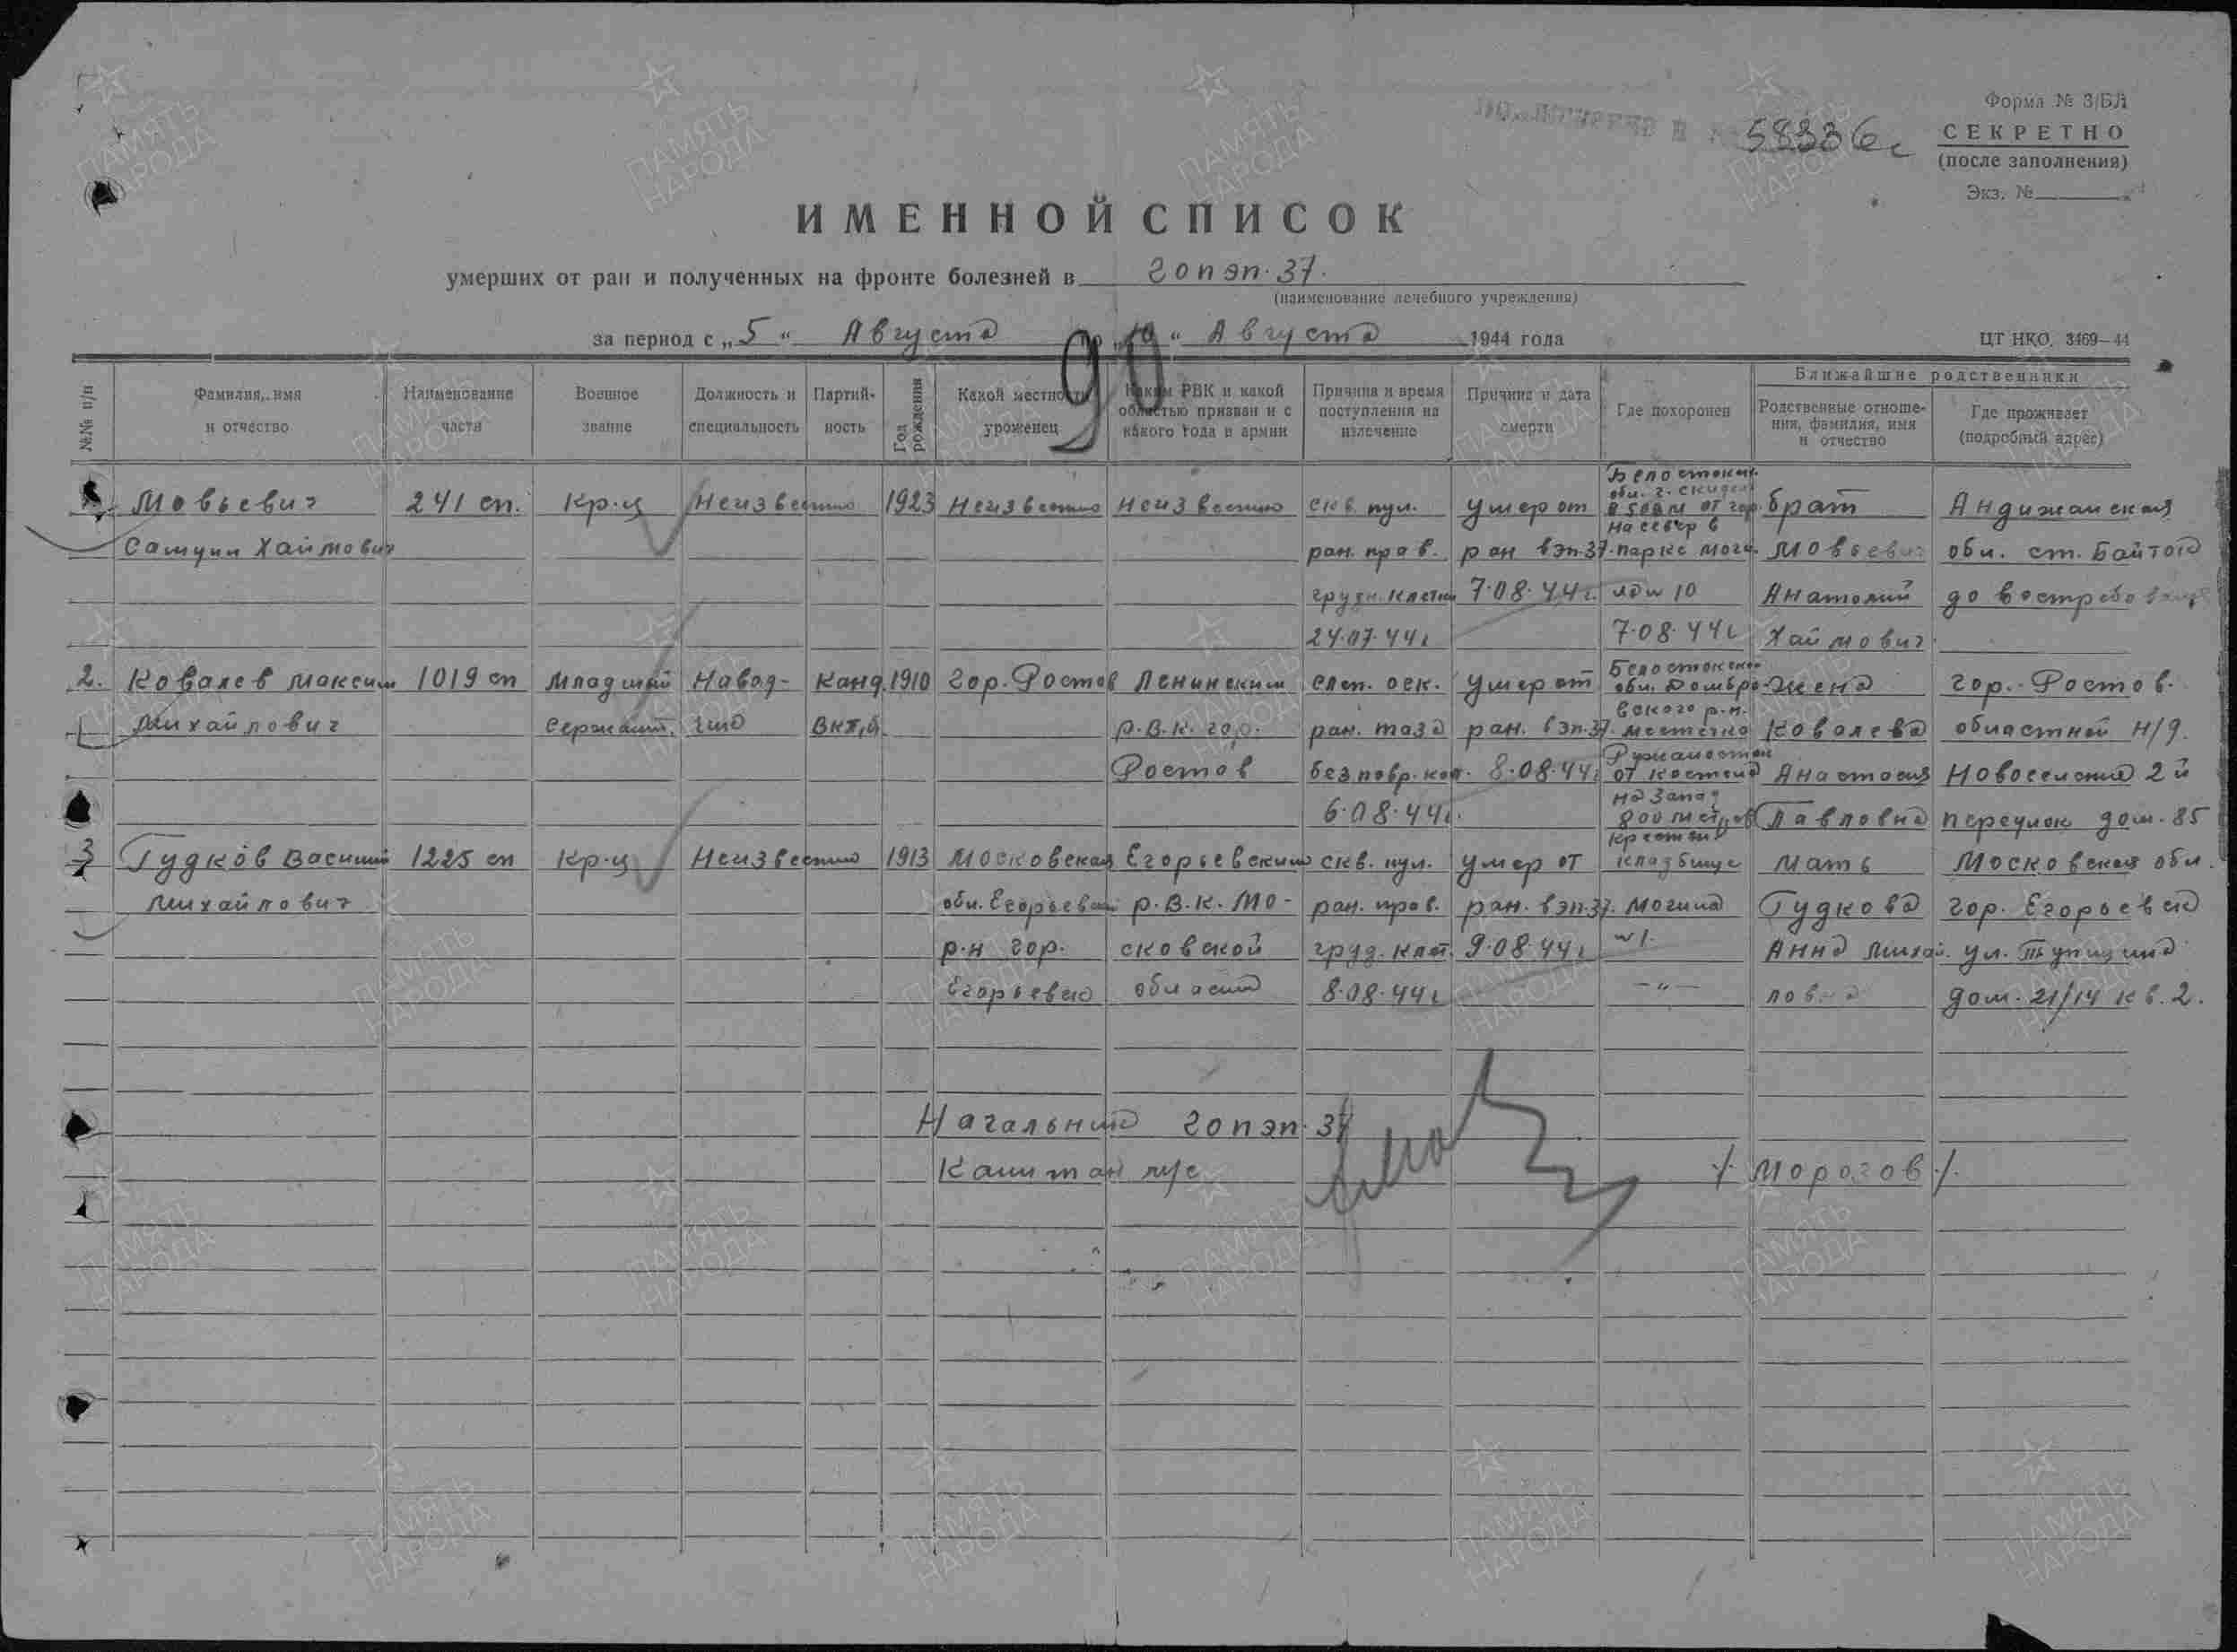 Форма № 3/БЛ
58336с
СЕКРЕТНО
(после заполнения)
Экз. №
ИМЕННОЙ СПИСОК
умерших от ран и полученных на фронте болезней в гопэп. 37.
(наименование лечебного учреждения)
за период с „5“ Августа „10“ Августа 1944 года
ЦТ НКО. 3469—44
90
№№ п/п
Фамилия, имя и отчество
Наименование части
Военное звание
Должность и специальность
Партийность
Год рождения
Какой местности уроженец
Каким РВК и какой областью призван и с какого года в армии
Причина и время поступления на излечение
Причина и дата смерти
Где похоронен
Ближайшие родственники
Родственные отношения, фамилия, имя и отчество
Где проживает (подробный адрес)
Мовьевич 241 сп. Кр-ц Неизвестно 1923 Неизвестно Неизвестно скв. пул. умер от Белостокск. обл. г. Скидель в 500 м от гор. брат Андижанская
Самуил Хаймович ран. прав. ран вэп-37. на север в парке моги- Мовьевич обл. ст. Байток
грудн. клетки 7.08.44г. ла № 10 Анатолий до востребования
24.07.44г 7.08.44г Хаймович
2. Ковалев Максим 1019 сп Младший Навод- Канд. 1910 гор. Ростов Ленинским слеп. оск. умер от Белостокской обл. Домбро- жена гор. Ростов.
Михайлович сержант. чик ВКП,б р.В.К. гор. ран. таза ран. вэп-37. вского р-н. местечко Ковалева областной Н/д.
Ростов без повр. кост. 8.08.44г от костела Анастасия Новоселский 2й
6.08.44г. на запад 800 метров Павловна переулок дом. 85
3 Гудков Василий 1225 сп Кр-ц Неизвестно 1913 Московская Егорьевским скв. пул. умер от кладбище мать Московская обл.
Михайлович обл. Егорьевский р.В.К. Мо- ран. прав. ран. вэп-37. могила Гудкова гор. Егорьевск
р-н гор. сковской груд. клет. 9.08.44г №1. Анна Михай- ул.
Егорьевск области 8.08.44г —"— ловна дом. 21/14 кв. 2.
Начальник гопэп. 37
Капитан м/с /Морозов/.
ПАМЯТЬ НАРОДА